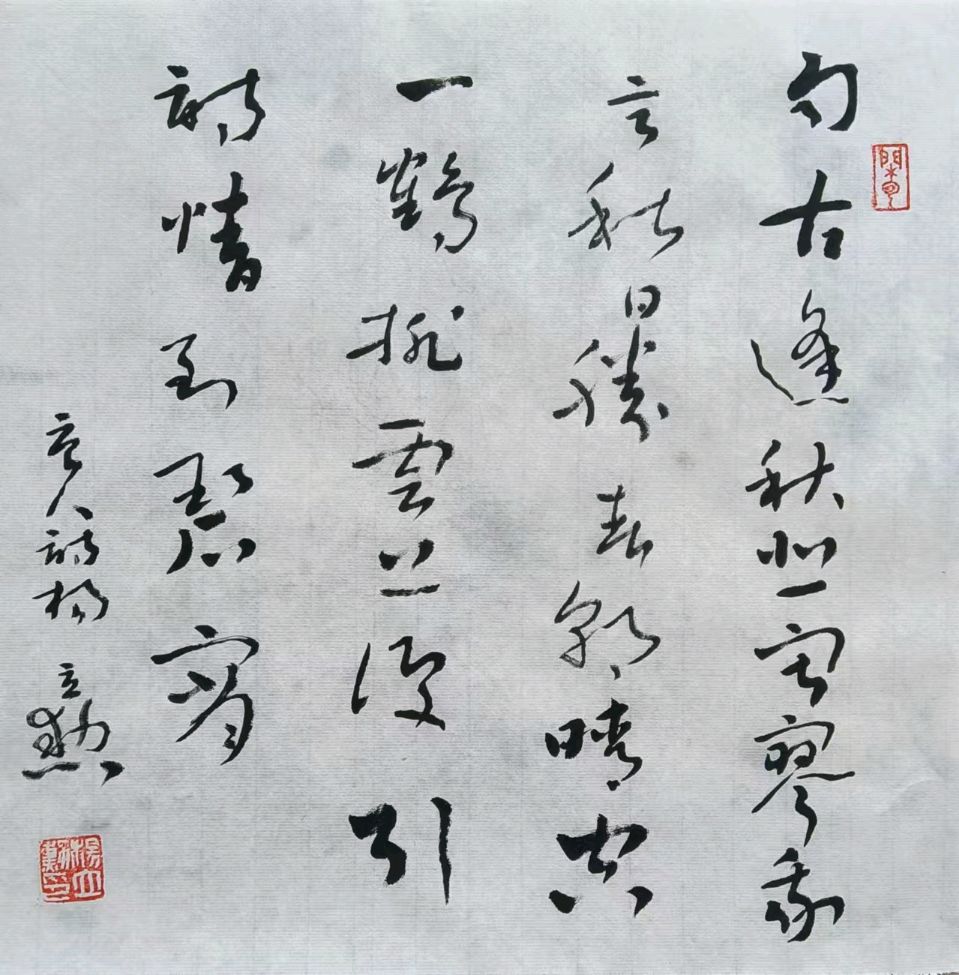 自古逢秋悲寂寥我
言秋日勝春朝晴空
一鶴排雲上便引
詩情到碧霄
唐人詩楊立勳